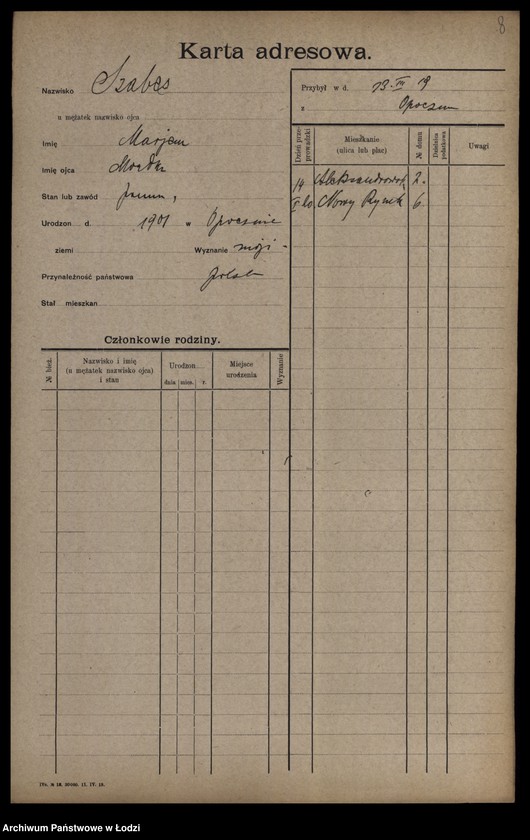 8
Karta adresowa.
Nazwisko Szabes
u mężatek nazwisko ojca
Imię Marjem
Imię ojca
Stan lub zawód panna,
Urodzon d. 1901 w Opocznie
ziemi Wyznanie mojż-
Przynależność państwowa polsk
Stał mieszkan
Przybył w d. 13. 19
z Opoczna
Dzień przeprowadzki
Mieszkanie
(ulica lub plac)
№ domu
Dzielnica podatkowa
Uwagi
14 Aleksandrowsk 2.
Nowy Rynek 6.
Członkowie rodziny.
№ bież.
Nazwisko i imię
(u mężatek nazwisko ojca)
i stan
Urodzon
dnia mies. r.
Miejsce
urodzenia
Wyznanie
Archiwum Państwowe w Łodzi